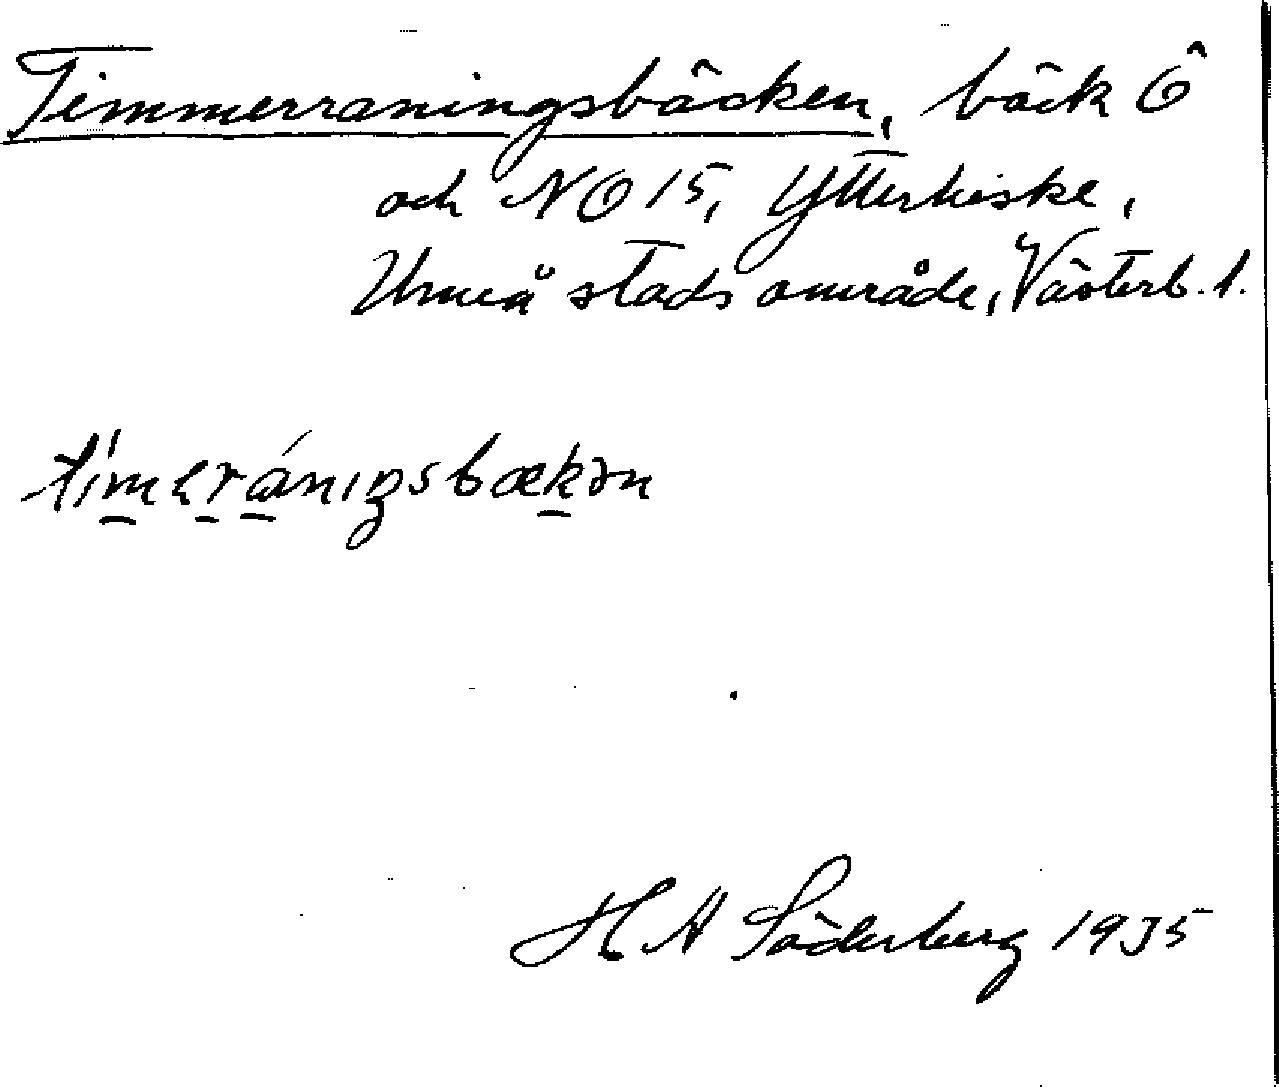 Timmerraningsbäcken, bäck Ö
och NO 15, Ytterhiske,
Umeå stads område, Västerb. l.
tímɛrániŋsbækən
H A Söderberg 1935